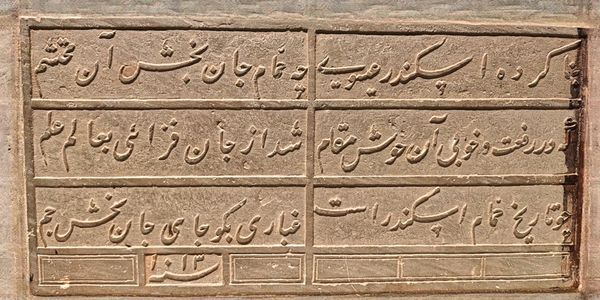 بنا کرده اسکندر عیسوی چه حمام جان بخش آن محتشم
که در رفعت و خوبی آن خوش مقام شد از جان فزائی بعالم علم
چو تاریخ حمام اسکندر است غباری بگو جای جان بخش جم
سنه ۱۳